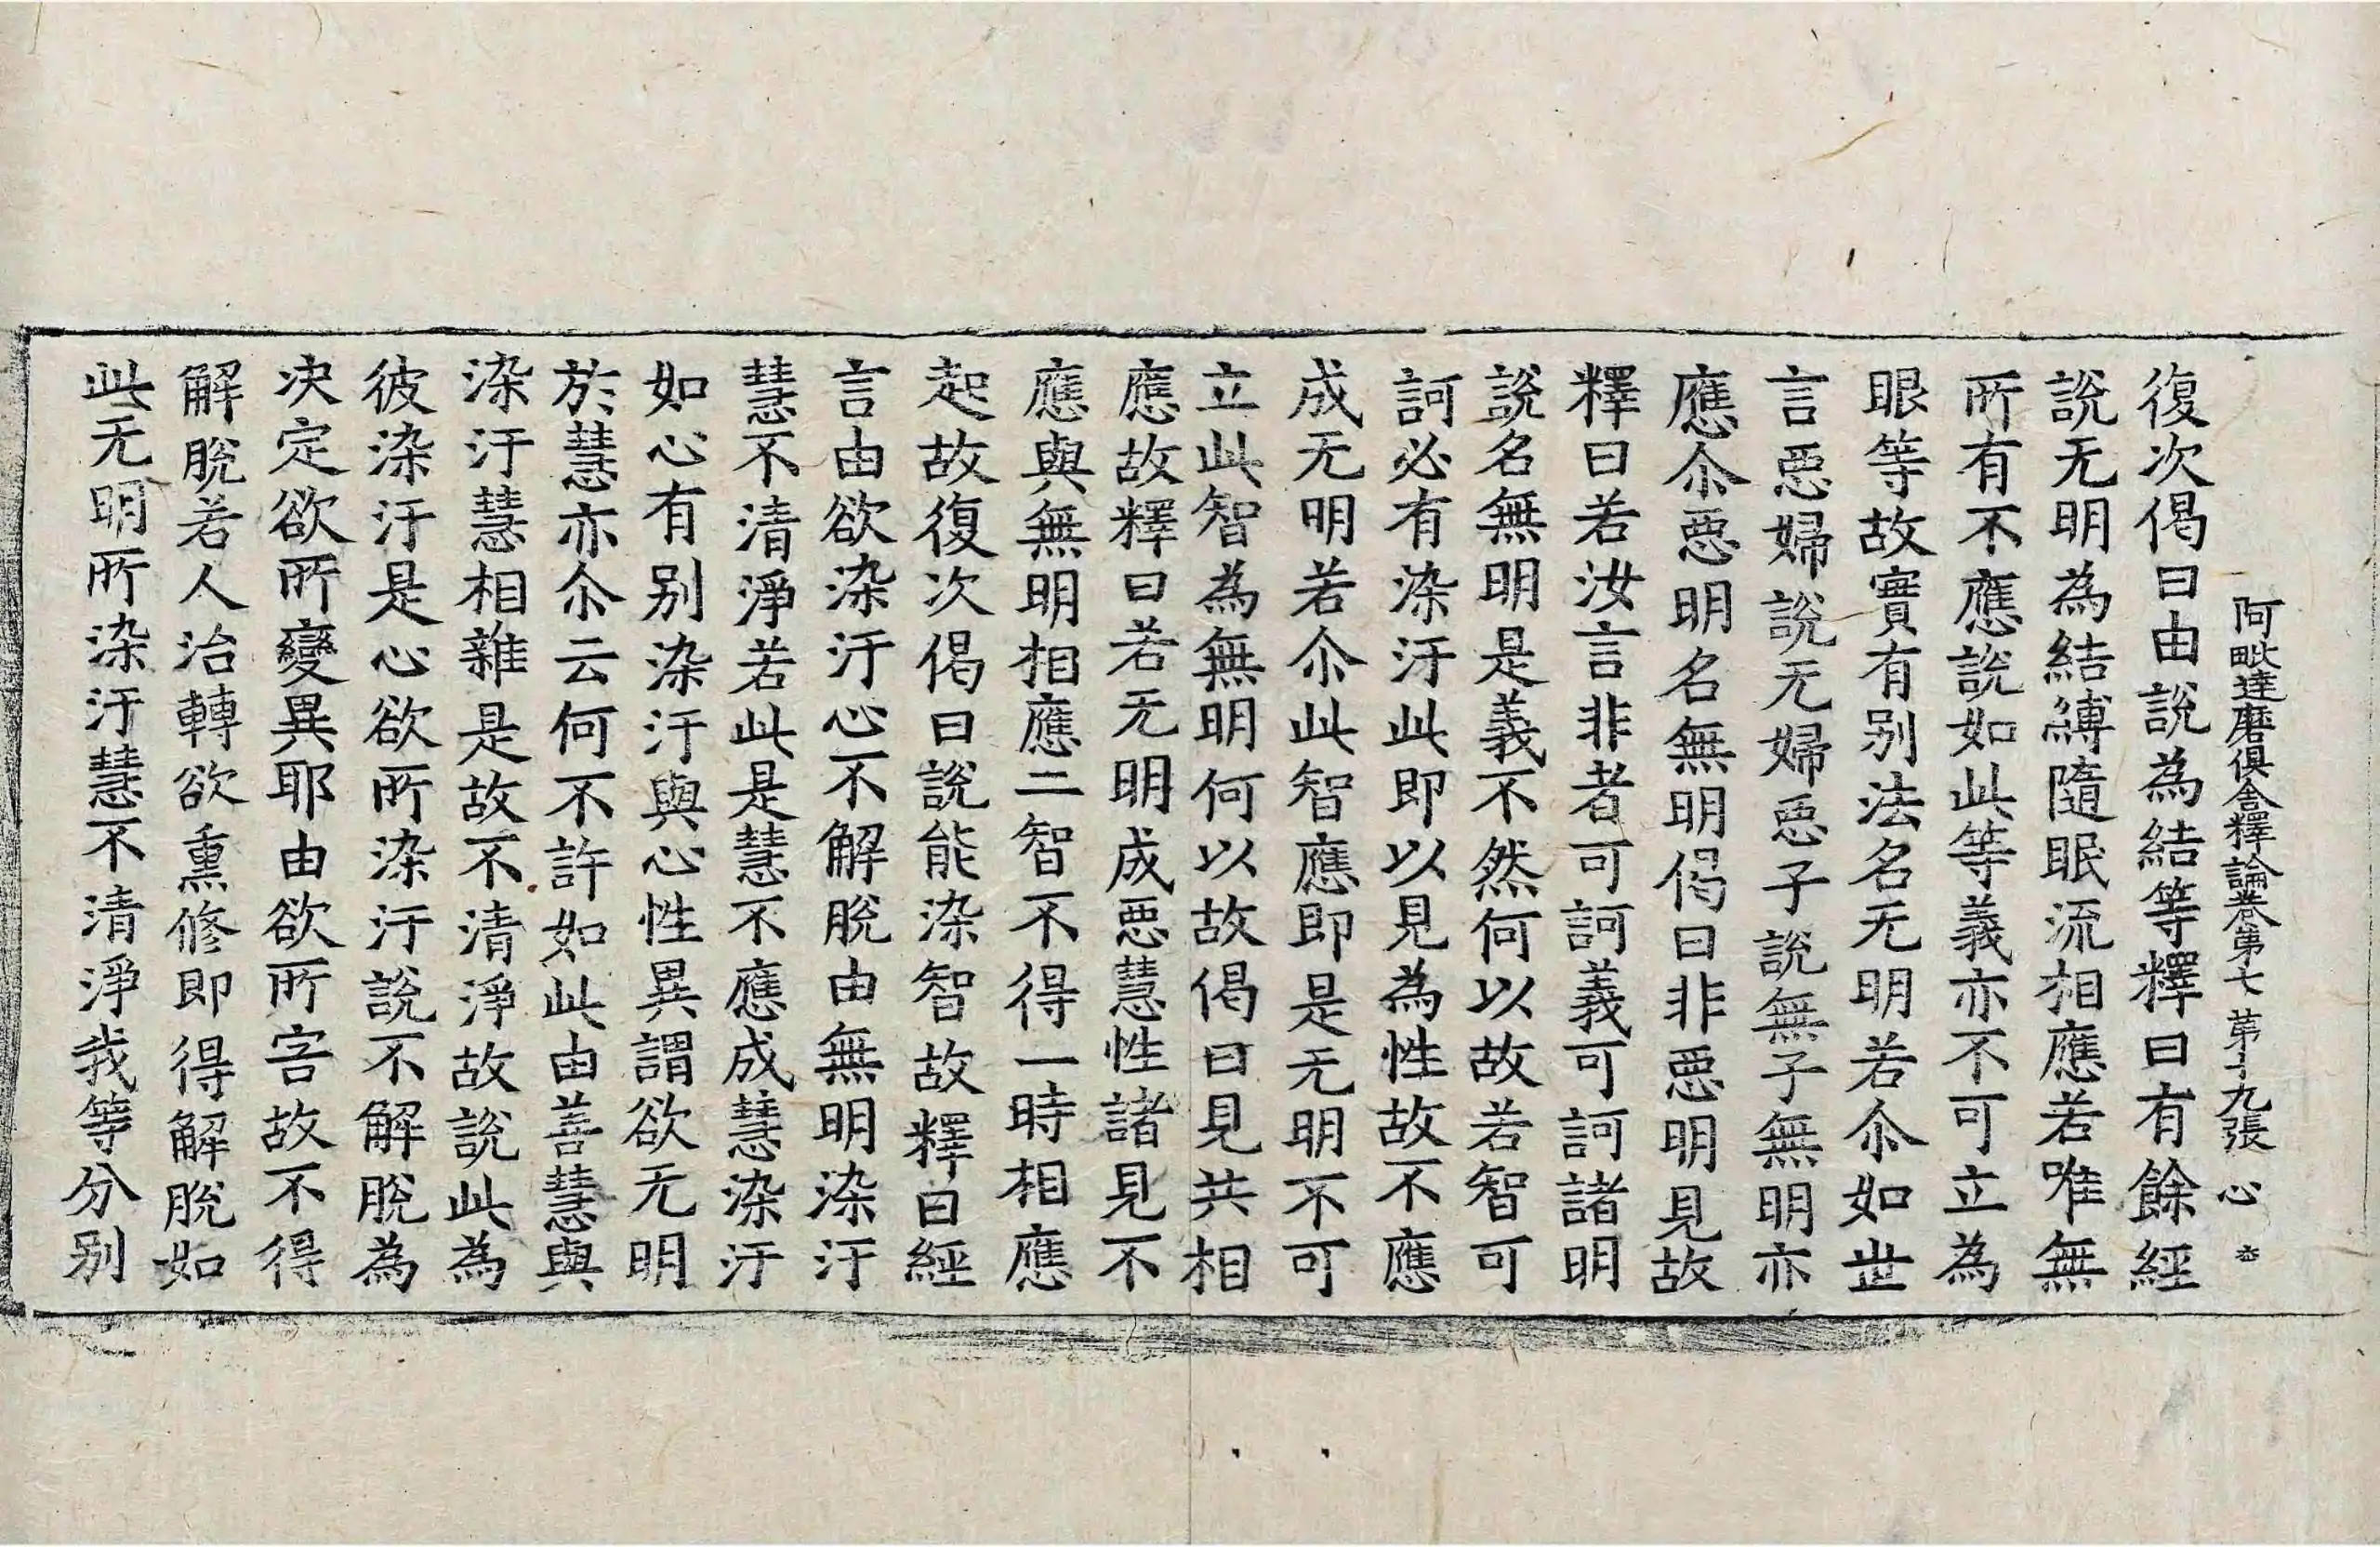 阿毗達磨俱舍釋論卷第七 第十九張 心
復次偈曰由說為結等釋曰有餘經
說无明為結縛隨眠流相應若唯無
所有不應說如此等義亦不可立為
眼等故實有别法名无明若尒如世
言惡婦說无婦惡子說無子無明亦
應尒惡明名無明偈曰非惡明見故
釋曰若汝言非者可訶義可訶諸明
說名無明是義不然何以故若智可
訶必有染汙此即以見為性故不應
成无明若尒此智應即是无明不可
立此智為無明何以故偈曰見共相
應故釋曰若无明成惡慧性諸見不
應與無明相應二智不得一時相應
起故復次偈曰說能染智故釋曰經
言由欲染汙心不解脫由無明染汙
慧不清淨若此是慧不應成慧染汙
如心有别染汙與心性異謂欲无明
於慧亦尒云何不許如此由善慧與
染汙慧相雜是故不清淨故說此為
彼染汙是心欲所染汙說不解脫為
决定欲所變異耶由欲所害故不得
解脫若人治轉欲熏修即得解脫如
此无明所染汙慧不清淨我等分别